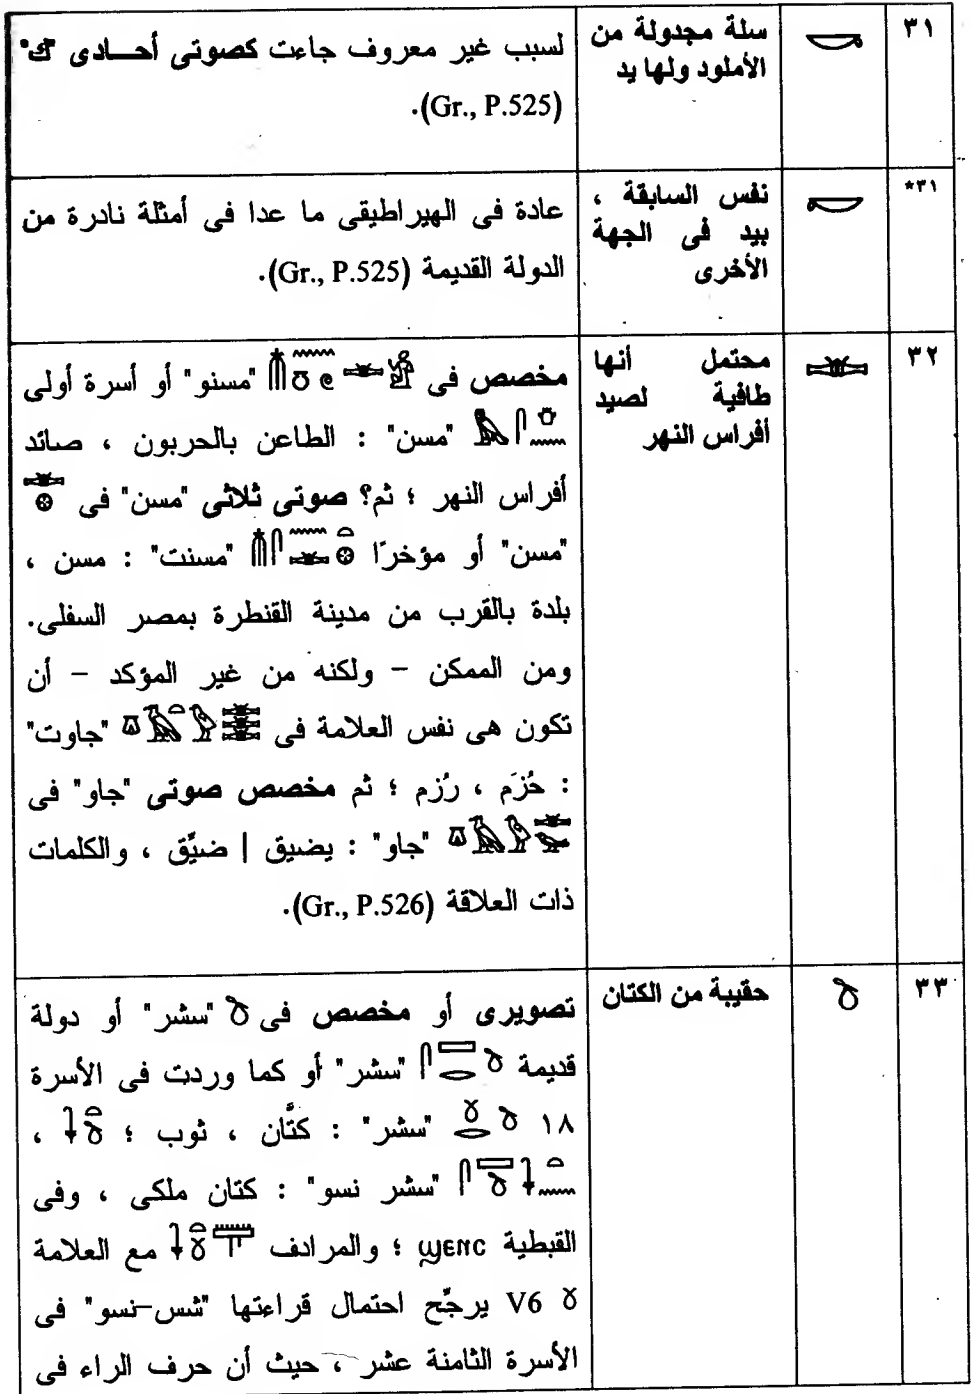 ٣١
سلة مجدولة من
الأملود ولها يد
لسبب غير معروف جاءت كصوتى أحادى "ك"
(Gr., P.525).
٣١*
نفس السابقة ،
بيد فى الجهة
الأخرى
عادة فى الهيراطيقى ما عدا فى أمثلة نادرة من
الدولة القديمة (Gr., P.525).
٣٢
محتمل أنها
طافية لصيد
أفراس النهر
مخصص فى "مسنو" أو أسرة أولى
"مسن" : الطاعن بالحربون ، صائد
أفراس النهر ؛ ثم؟ صوتى ثلاثى "مسن" فى
"مسن" أو مؤخرًا "مسنت" : مسن ،
بلدة بالقرب من مدينة القنطرة بمصر السفلى.
ومن الممكن – ولكنه من غير المؤكد – أن
تكون هى نفس العلامة فى "جاوت"
: حُزَم ، رُزم ؛ ثم مخصص صوتى "جاو" فى
"جاو" : يضيق | ضيِّق ، والكلمات
ذات العلاقة (Gr., P.526).
٣٣
حقيبة من الكتان
تصويرى أو مخصص فى "سشر" أو دولة
قديمة "سشر" أو كما وردت فى الأسرة
١٨ "سشر" : كتَّان ، ثوب ؛ ،
"سشر نسو" : كتان ملكى ، وفى
القبطية ϣⲉⲛⲥ ؛ والمرادف مع العلامة
V6 يرجِّح احتمال قراءتها "شس-نسو" فى
الأسرة الثامنة عشر ، حيث أن حرف الراء فى